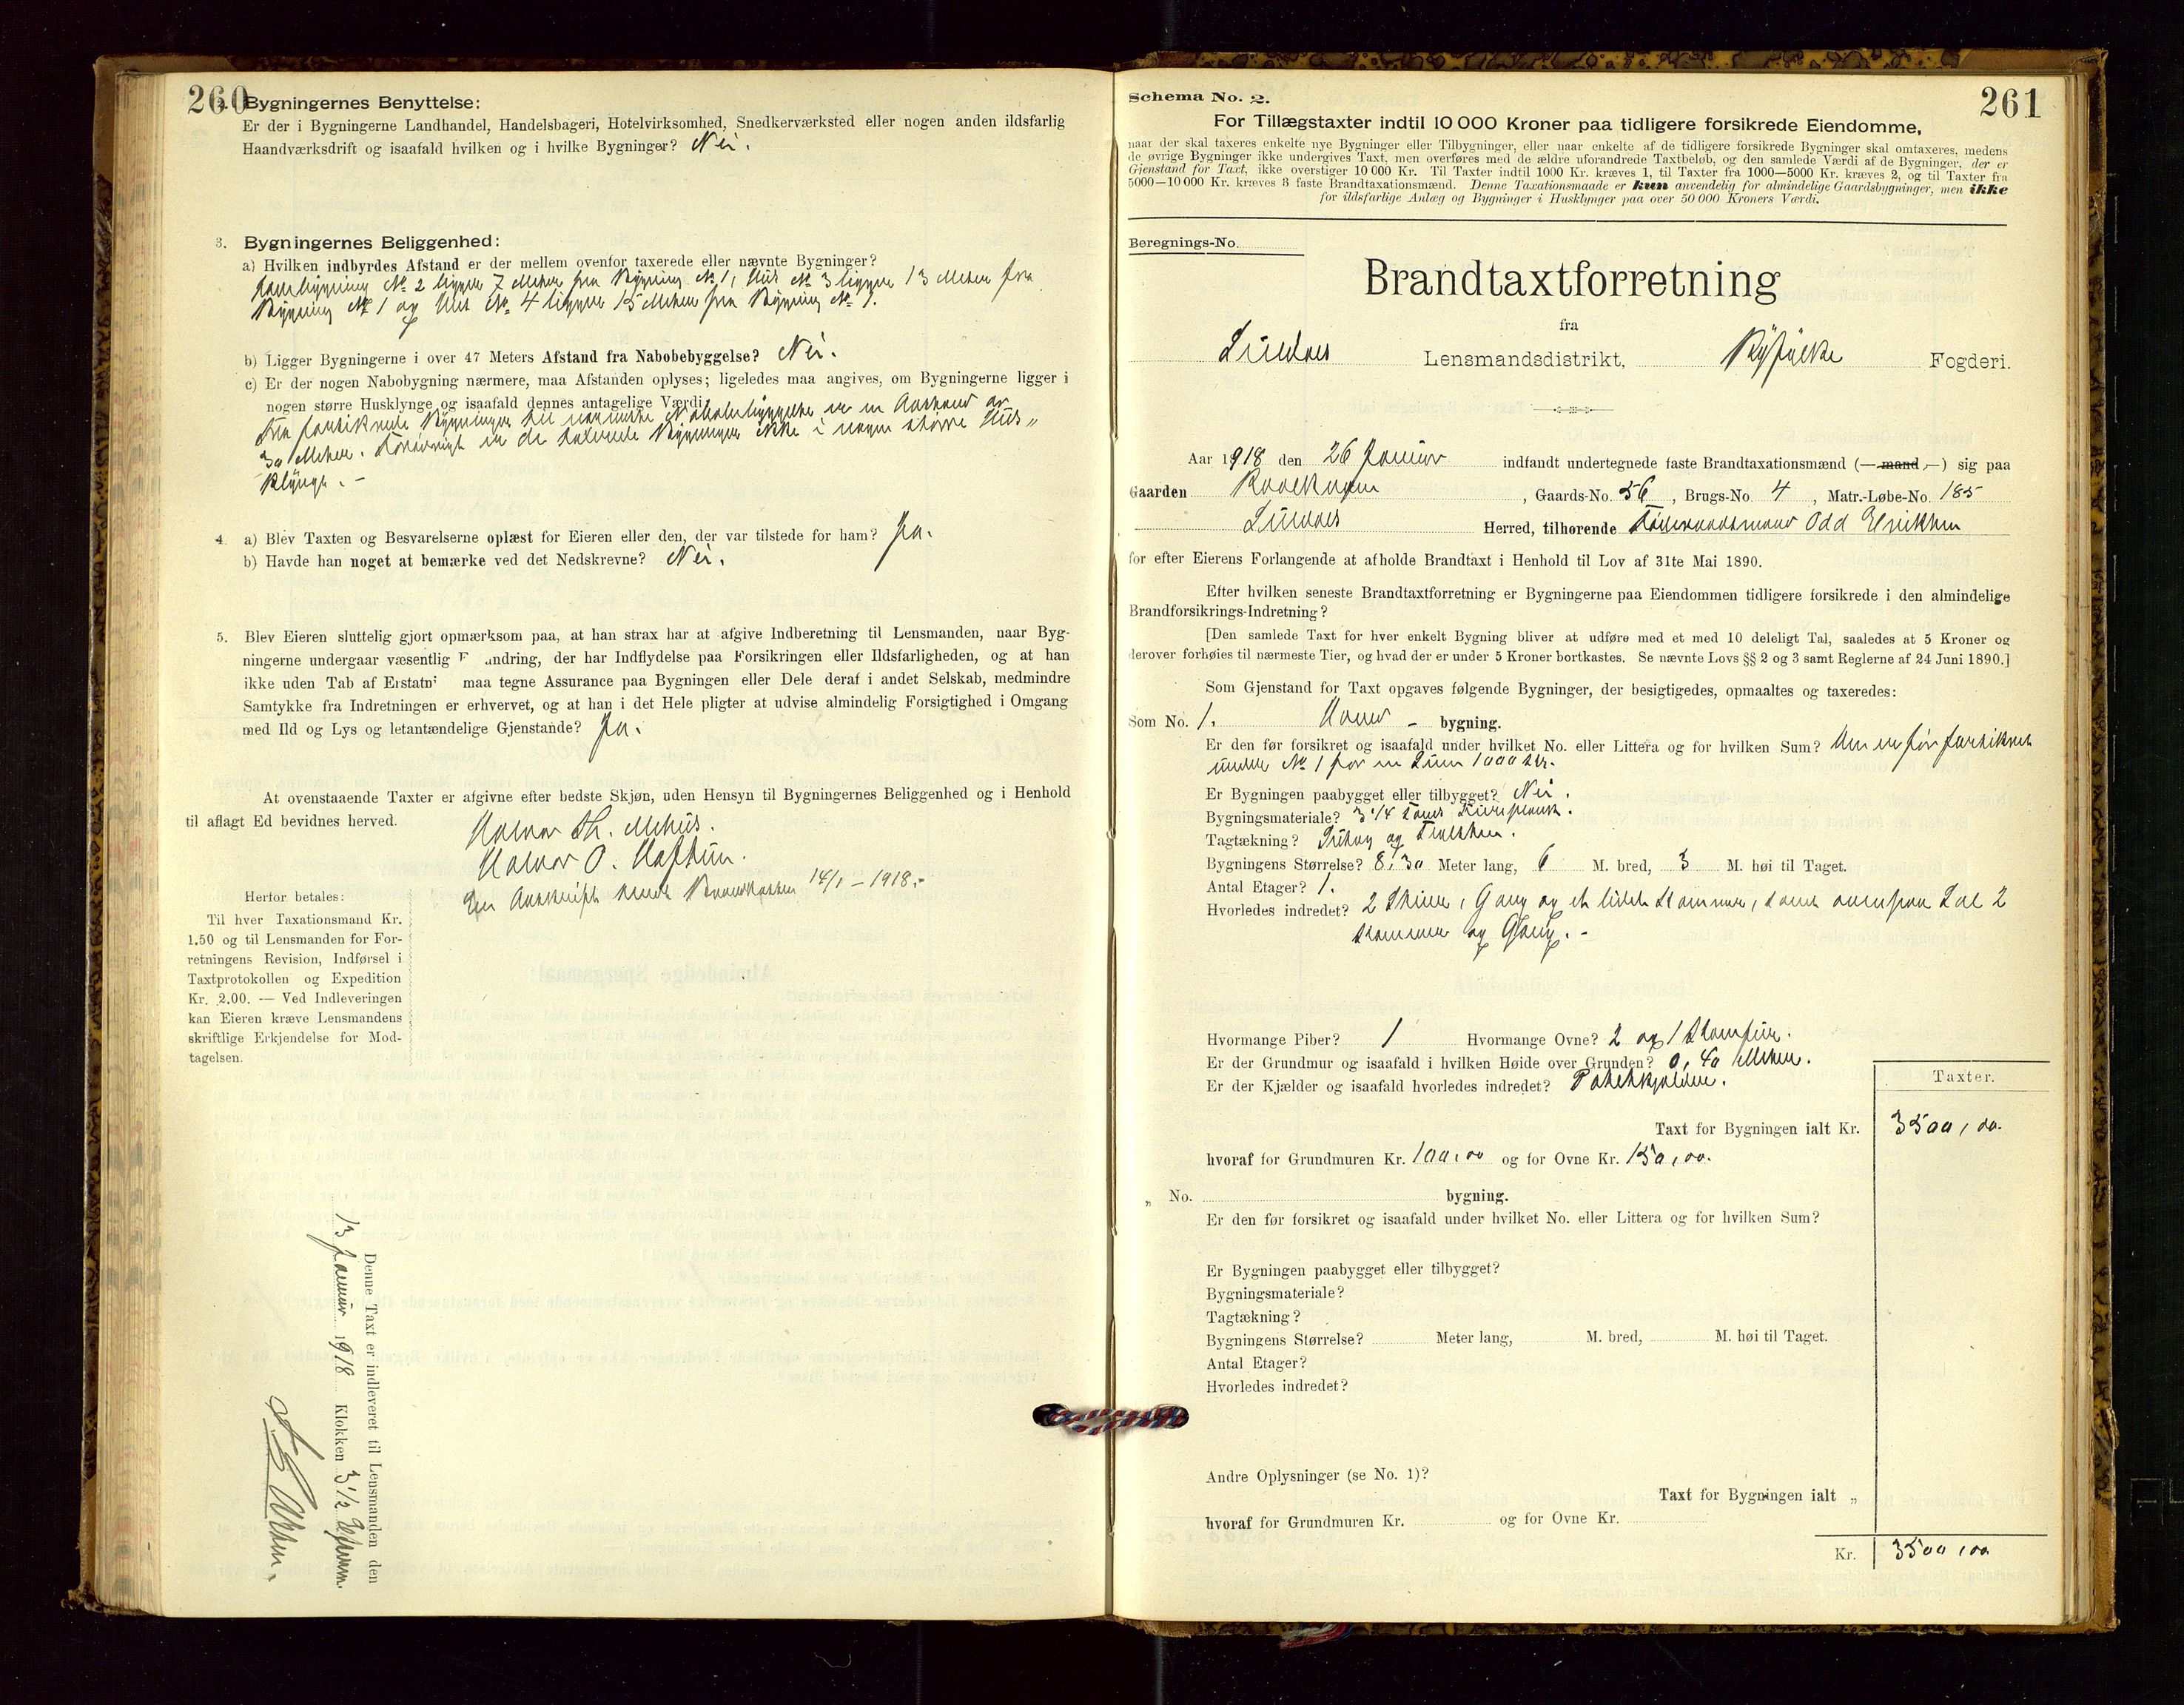 260
2. Bygningernes Benyttelse:
Er der i Bygningerne Landhandel, Handelsbageri, Hotelvirksomhed, Snedkerværksted eller nogen anden ildsfarlig
Haandværksdrift og isaafald hvilken og i hvilke Bygninger? Nei.
3. Bygningernes Beliggenhed:
a) Hvilken indbyrdes Afstand er der mellem ovenfor taxerede eller nævnte Bygninger?
bygning No 2 ligger 7 Meter fra Bygning No 1, Hus No 3 ligger 13 Meter fra
Bygning No 1 og Hus No. 4 ligger 15 Meter fra Bygning No 1.
b) Ligger Bygningerne i over 47 Meters Afstand fra Nabobebyggelse? Nei.
c) Er der nogen Nabobygning nærmere, maa Afstanden oplyses; ligeledes maa angives, om Bygningerne ligger i
nogen større Husklynge og isaafald dennes antagelige Værdi.
Fra forsikrede Bygninger til nærmeste Nabobebyggelse er en Afstand av
30 Meter. Forøvrigt er de taxerede Bygninger ikke i nogen større Hus„
klynge. -
4. a) Blev Taxten og Besvarelserne oplæst for Eieren eller den, der var tilstede for ham? Ja.
b) Havde han noget at bemærke ved det Nedskrevne? Nei.
5. Blev Eieren sluttelig gjort opmærksom paa, at han strax har at afgive Indberetning til Lensmanden, naar Byg-
ningerne undergaar væsentlig F andring, der har Indflydelse paa Forsikringen eller Ildsfarligheden, og at han
ikke uden Tab af Erstatn maa tegne Assurance paa Bygningen eller Dele deraf i andet Selskab, medmindre
Samtykke fra Indretningen er erhvervet, og at han i det Hele pligter at udvise almindelig Forsigtighed i Omgang
med Ild og Lys og letantændelige Gjenstande? Ja.
At ovenstaaende Taxter er afgivne efter bedste Skjøn, uden Hensyn til Bygningernes Beliggenhed og i Henhold
til aflagt Ed bevidnes herved.
Halvor Th. Mehus.
Halvor O. Haftun.
Avskrift sendt Brandkassen 14/1 - 1918.-
Herfor betales:
Til hver Taxationsmand Kr.
1.50 og til Lensmanden for For-
retningens Revision, Indførsel i
Taxtprotokollen og Expedition
Kr. 2.00. — Ved Indleveringen
kan Eieren kræve Lensmandens
skriftlige Erkjendelse for Mod-
tagelsen.
Denne Taxt er indleveret til Lensmanden den
13 Januar 1918 Klokken 3 1/2 Efterm.
261
Schema No. 2.
For Tillægstaxter indtil 10 000 Kroner paa tidligere forsikrede Eiendomme,
naar der skal taxeres enkelte nye Bygninger eller Tilbygninger, eller naar enkelte af de tidligere forsikrede Bygninger skal omtaxeres, medens
de øvrige Bygninger ikke undergives Taxt, men overføres med de ældre uforandrede Taxtbeløb, og den samlede Værdi af de Bygninger, der er
Gjenstand for Taxt, ikke overstiger 10 000 Kr. Til Taxter indtil 1000 Kr. kræves 1, til Taxter fra 1000—5000 Kr. kræves 2, og til Taxter fra
5000—10 000 Kr. kræves 3 faste Brandtaxationsmænd. Denne Taxationsmaade er kun anvendelig for almindelige Gaardsbygninger, men ikke
for ildsfarlige Anlæg og Bygninger i Husklynger paa over 50 000 Kroners Værdi.
Beregnings-No.
Brandtaxtforretning
fra
Suldal Lensmandsdistrikt, Ryfylke Fogderi.
Aar 1918 den 26 Januar indfandt undertegnede faste Brandtaxationsmænd (— mand —) sig paa
Gaarden , Gaards-No. 56, Brugs-No. 4, Matr.-Løbe-No. 185
Suldal Herred, tilhørende Odd Eriksen
for efter Eierens Forlangende at afholde Brandtaxt i Henhold til Lov af 31te Mai 1890.
Efter hvilken seneste Brandtaxtforretning er Bygningerne paa Eiendommen tidligere forsikrede i den almindelige
Brandforsikrings-Indretning?
[Den samlede Taxt for hver enkelt Bygning bliver at udføre med et med 10 deleligt Tal, saaledes at 5 Kroner og
derover forhøies til nærmeste Tier, og hvad der er under 5 Kroner bortkastes. Se nævnte Lovs §§ 2 og 3 samt Reglerne af 24 Juni 1890.]
Som Gjenstand for Taxt opgaves følgende Bygninger, der besigtigedes, opmaaltes og taxeredes:
Som No. 1. Hoved - bygning.
Er den før forsikret og isaafald under hvilket No. eller Littera og for hvilken Sum? Den er før forsikret
under No 1 for en Sum 1000 kr.
Er Bygningen paabygget eller tilbygget? Nei.
Bygningsmateriale? 3 1/4 toms Furuplank.
Tagtækning? Suhey og Tæksten.
Bygningens Størrelse? 8,30 Meter lang, 6 M. bred, 3 M. høi til Taget.
Antal Etager? 1.
Hvorledes indredet? 2 Stuer, Gang og et lidet Kammer, samt ovenpaa Sal 2
Kammer og Gang. -
Hvormange Piber? 1 Hvormange Ovne? 2 og 1 Komfur.
Er der Grundmur og isaafald i hvilken Høide over Grunden? 0,40 Meter.
Er der Kjælder og isaafald hvorledes indredet? Potetkjelder.
Taxter.
Taxt for Bygningen ialt Kr. 3500,00.
hvoraf for Grundmuren Kr. 100,00 og for Ovne Kr. 150,00.
„ No. bygning.
Er den før forsikret og isaafald under hvilket No. eller Littera og for hvilken Sum?
Er Bygningen paabygget eller tilbygget?
Bygningsmateriale?
Tagtækning?
Bygningens Størrelse? Meter lang, M. bred, M. høi til Taget.
Antal Etager?
Hvorledes indredet?
Andre Oplysninger (se No. 1)?
Taxt for Bygningen ialt „
hvoraf for Grundmuren Kr. og for Ovne Kr.
Kr. 3500,00